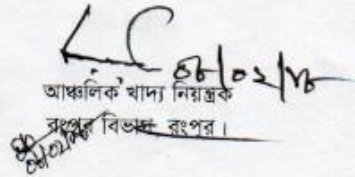 ০৮/০২/১৮
আঞ্চলিক খাদ্য নিয়ন্ত্রক
রংপুর বিভাগ রংপুর।